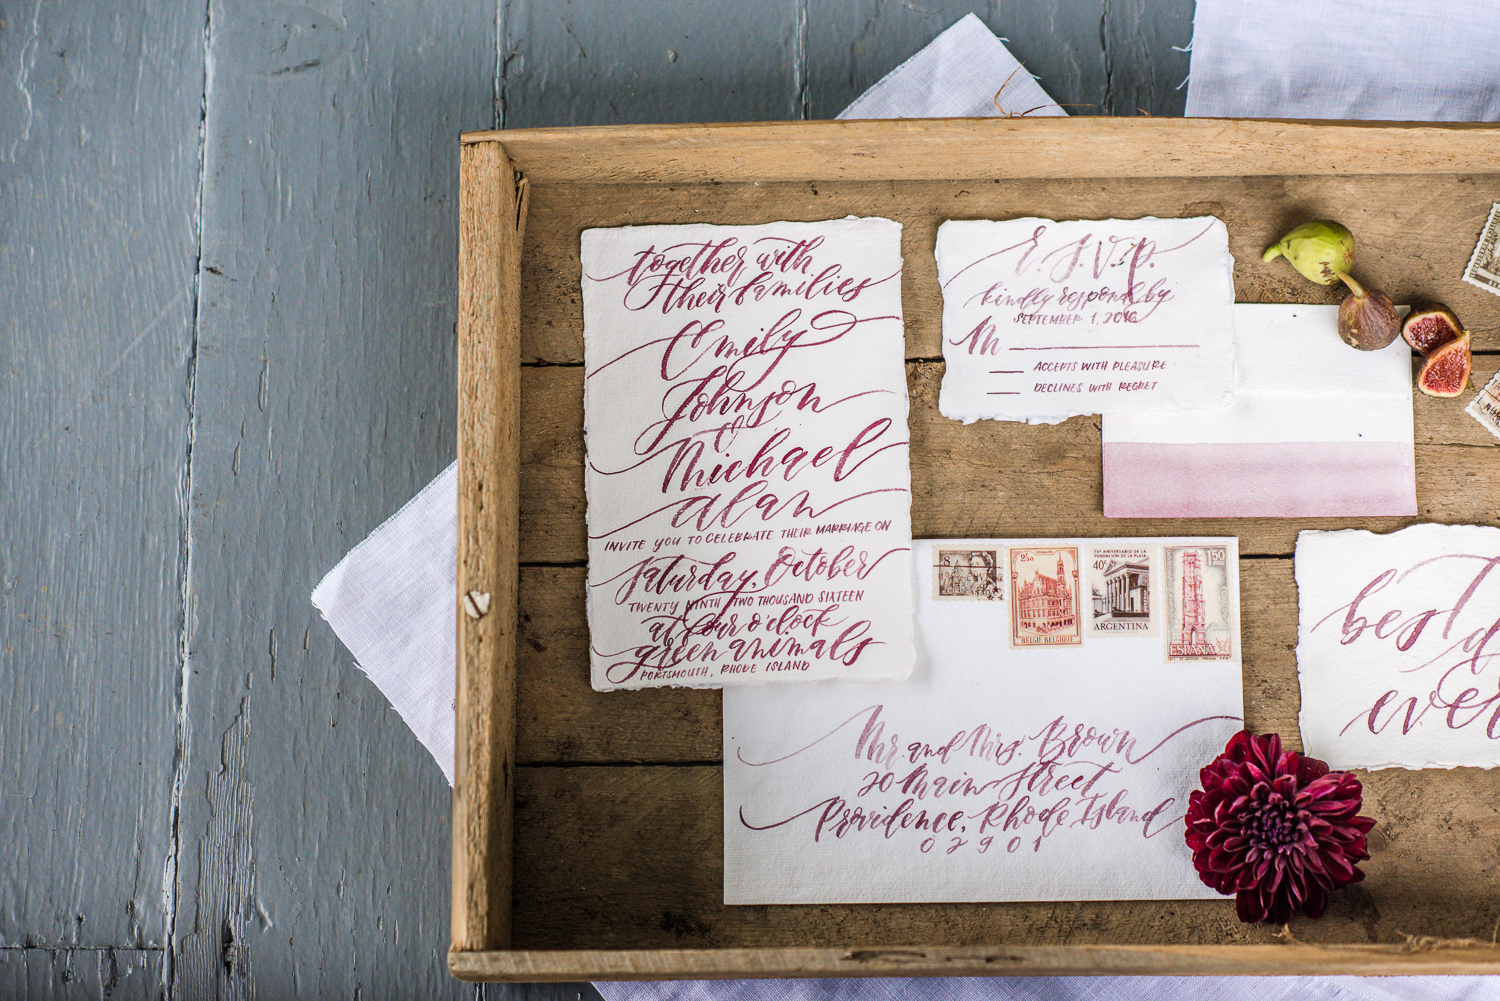 together with
their families
Emily
Johnson
&
Michael
Alan
INVITE YOU TO CELEBRATE THEIR MARRIAGE ON
Saturday, October
TWENTY NINTH TWO THOUSAND SIXTEEN
at four o'clock
green animals
PORTSMOUTH, RHODE ISLAND
R.S.V.P.
kindly respond by
SEPTEMBER 1, 2016
M
ACCEPTS WITH PLEASURE
DECLINES WITH REGRET
8
2.50
BELGIE BELGIQUE
75º ANIVERSARIO DE LA
FUNDACION DE LA PLATA
40c
ARGENTINA
1,50
PTAS
ESPAÑA
Mr. and Mrs. Brown
20 Main Street
Providence, Rhode Island
02901
best
ever